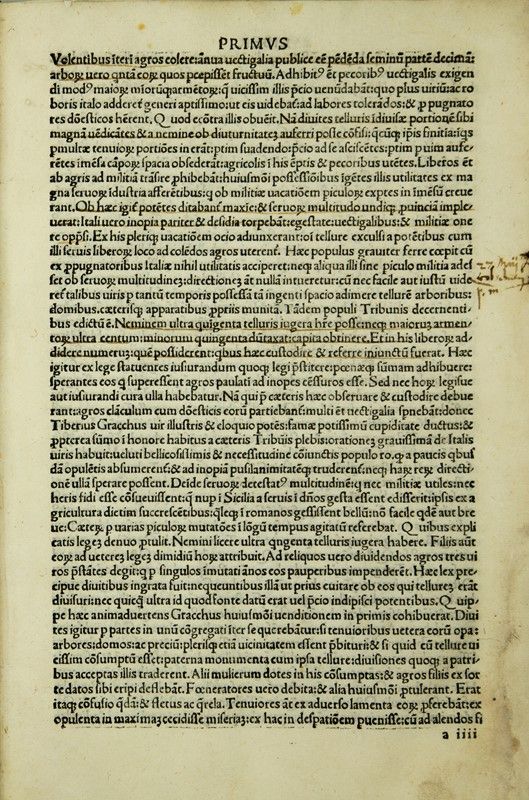 PRIMVS
Volentibus iterī agros colere: ānua uectigalia publice eē pēdēda seminū partē decimā:
arboɽ uero qntā eoɽ quos pcepissēt fructuū. Adhibitꝰ ēt pecoribꝰ uectigalis exigen
di modꝰ maioɽ mioɽūq; armētoɽ: q uicissim illis p̄cio uenūdabāt: quo plus uiriū: ac ro
boris italo adderēt generi aptissimo: ut eis uidebat: ad labores tolerādos: & ꝓpugnato
res dōesticos hērent. Quod ecōtra illis obuēit. Nā diuites telluris īdiuisæ portionē sibi
magnā uēdicātes & a nemine ob diuturnitatē auferri posse cōfisi: q̄cūq; ipis finitia: iqs
pmultæ tenuioɽ portiōes in erāt: ptim suadendo: p̄cio ad se asciscētes: ptim p uim aufe⸗
rētes imēsa cāpoɽ spacia obsederāt: agricolis ī his ēptis & pecoribus utētes. Liberos ēt
ab agris ad militiā trāsire ꝓhibebāt: huiusmōi possessiōibus īgētes illis utilitates ex ma
gna seruoɽ īdustria afferētibus: q ob militiæ uacatiōem piculoɽ exptes in īmēsū creue
rant. Ob hæc igiť potētes ditabanť maxie: & seruoɽ multitudo undiq; ꝓuincia imple⸗
uerat: Itali uero inopia pariter & desidia torpebāt: egestate: uectigalibus: & militiæ one
re opp̄si. Ex his pleriq; uacatiōem ocio adiunxerant: oī tellure exculsi a potētibus cum
illi seruis liberoɽ loco ad colēdos agros uterenť. Hæc populus grauiter ferre cœpit cū
ex ꝓpugnatoribus Italiæ nihil utilitatis acciperet: neq; aliqua illi sine piculo militia ades
set ob seruoɽ multitudinez: directionez āt nullā intueretur: cū nec facile aut iustū uide
reť talibus uiris p tantū temporis possessā tā ingenti spacio adimere tellurē arboribus:
domibus. cæterisq; apparatibus ꝓpriis munitā. Tādem populi Tribunis decernenti⸗
bus edictū ē. Neminem ultra quigenta telluris iugera hr̄e posse: neq; maiorum armen⸗
torum ultra centum: minorum quingenta dūtaxat: capita obtinere. Et in his liberoɽ ad
didere numeruz: quē possiderent: qbus hæc custodire & referre iniunctū fuerat. Hæc
igitur ex lege statuentes iusiurandum quoq; legi p̄stitere: pœnāq; sūmam adhibuere:
sperantes eos q superessent agros paulati ad inopes cēssuros esse. Sed nec hoɽ legisue
aut iusiurandi cura ulla habebatur. Nā qui p cæteris hæc obseruare & custodire debue
rant: agros clāculum cum dōesticis eorū partiebanť: multi ēt uectigalia spnebāt: donec
Tiberius Gracchus uir illustris & eloquio potēs: famæ potissimū cupiditate ductus: &
ꝓpterea sūmo ī honore habitus a cæteris Tribūis plebis: orationez grauissimā de Italis
uiris habuit: ueluti bellicosissimis & necessitudine cōiunctis populo ro. q a paucis qbus
dā opulētis absumerenť: & ad inopiā pusilanimitatēq; truderenť: neq; haɽ reɽ directi⸗
onē ullā sperare possent. Deide seruoɽ detestatꝰ multitudinē: q nec militiæ utiles: nec
heris fidi esse cōsueuissent: q nup ī Sicilia a seruis ī dn̄os gesta essent edisserit: ipsis ex a
gricultura dietim succrescētibus: qleq; ī romanos gessissent bellū: nō facile qdē aut bre
ue: Cæteɽ p uarias piculoɽ mutatōes ī lōgū tempus agitatū referebat. Quibus expli
catis legez denuo ptulit. Nemini licere ultra qngenta telluris iugera habere. Filiis autē
eoɽ ad ueterez legez dimidiū hoɽ attribuit. Ad reliquos uero diuidendos agros tres ui
ros p̄stātes degit: q p singulos imutati ānos eos pauperibus impenderēt. Hæc lex præ
cipue diuitibus ingrata fuit: nequeuntibus illā ut prius euitare ob eos qui tellurez erāt
diuisuri: nec quicq̄ ultra id quod fonte datū erat uel p̄cio indipisci potentibus. Quip⸗
pe hæc animaduertens Gracchus huiusmōi uenditionem in primis cohibuerat. Diui
tes igitur p partes in unū cōgregati īter se querebātur: si tenuioribus uetera eorū opa:
arbores: domos: ac preciū: plerisq; etiā uicinitatem essent p̄bituri: & si quid cū tellure ui
cissim cōsumptū esset: paterna monumenta cum ipsa tellure: diuisiones quoq; a patri⸗
bus acceptas illis traderent. Alii mulierum dotes in his cōsumptas: & agros filiis ex sor
te datos sibi eripi deflebāt. Fœneratores uero debita: & alia huiusmōi ꝓtulerant. Erat
itaq; cōfusio qdā: & fletus ac qrela. Tenuiores āt ex aduerso lamenta eoɽ ꝓferebāt: ex
opulenta in maximaz cecidisse miseriaz: ex hac in despatiōem puenisse: cū ad alendos fi
a iiii